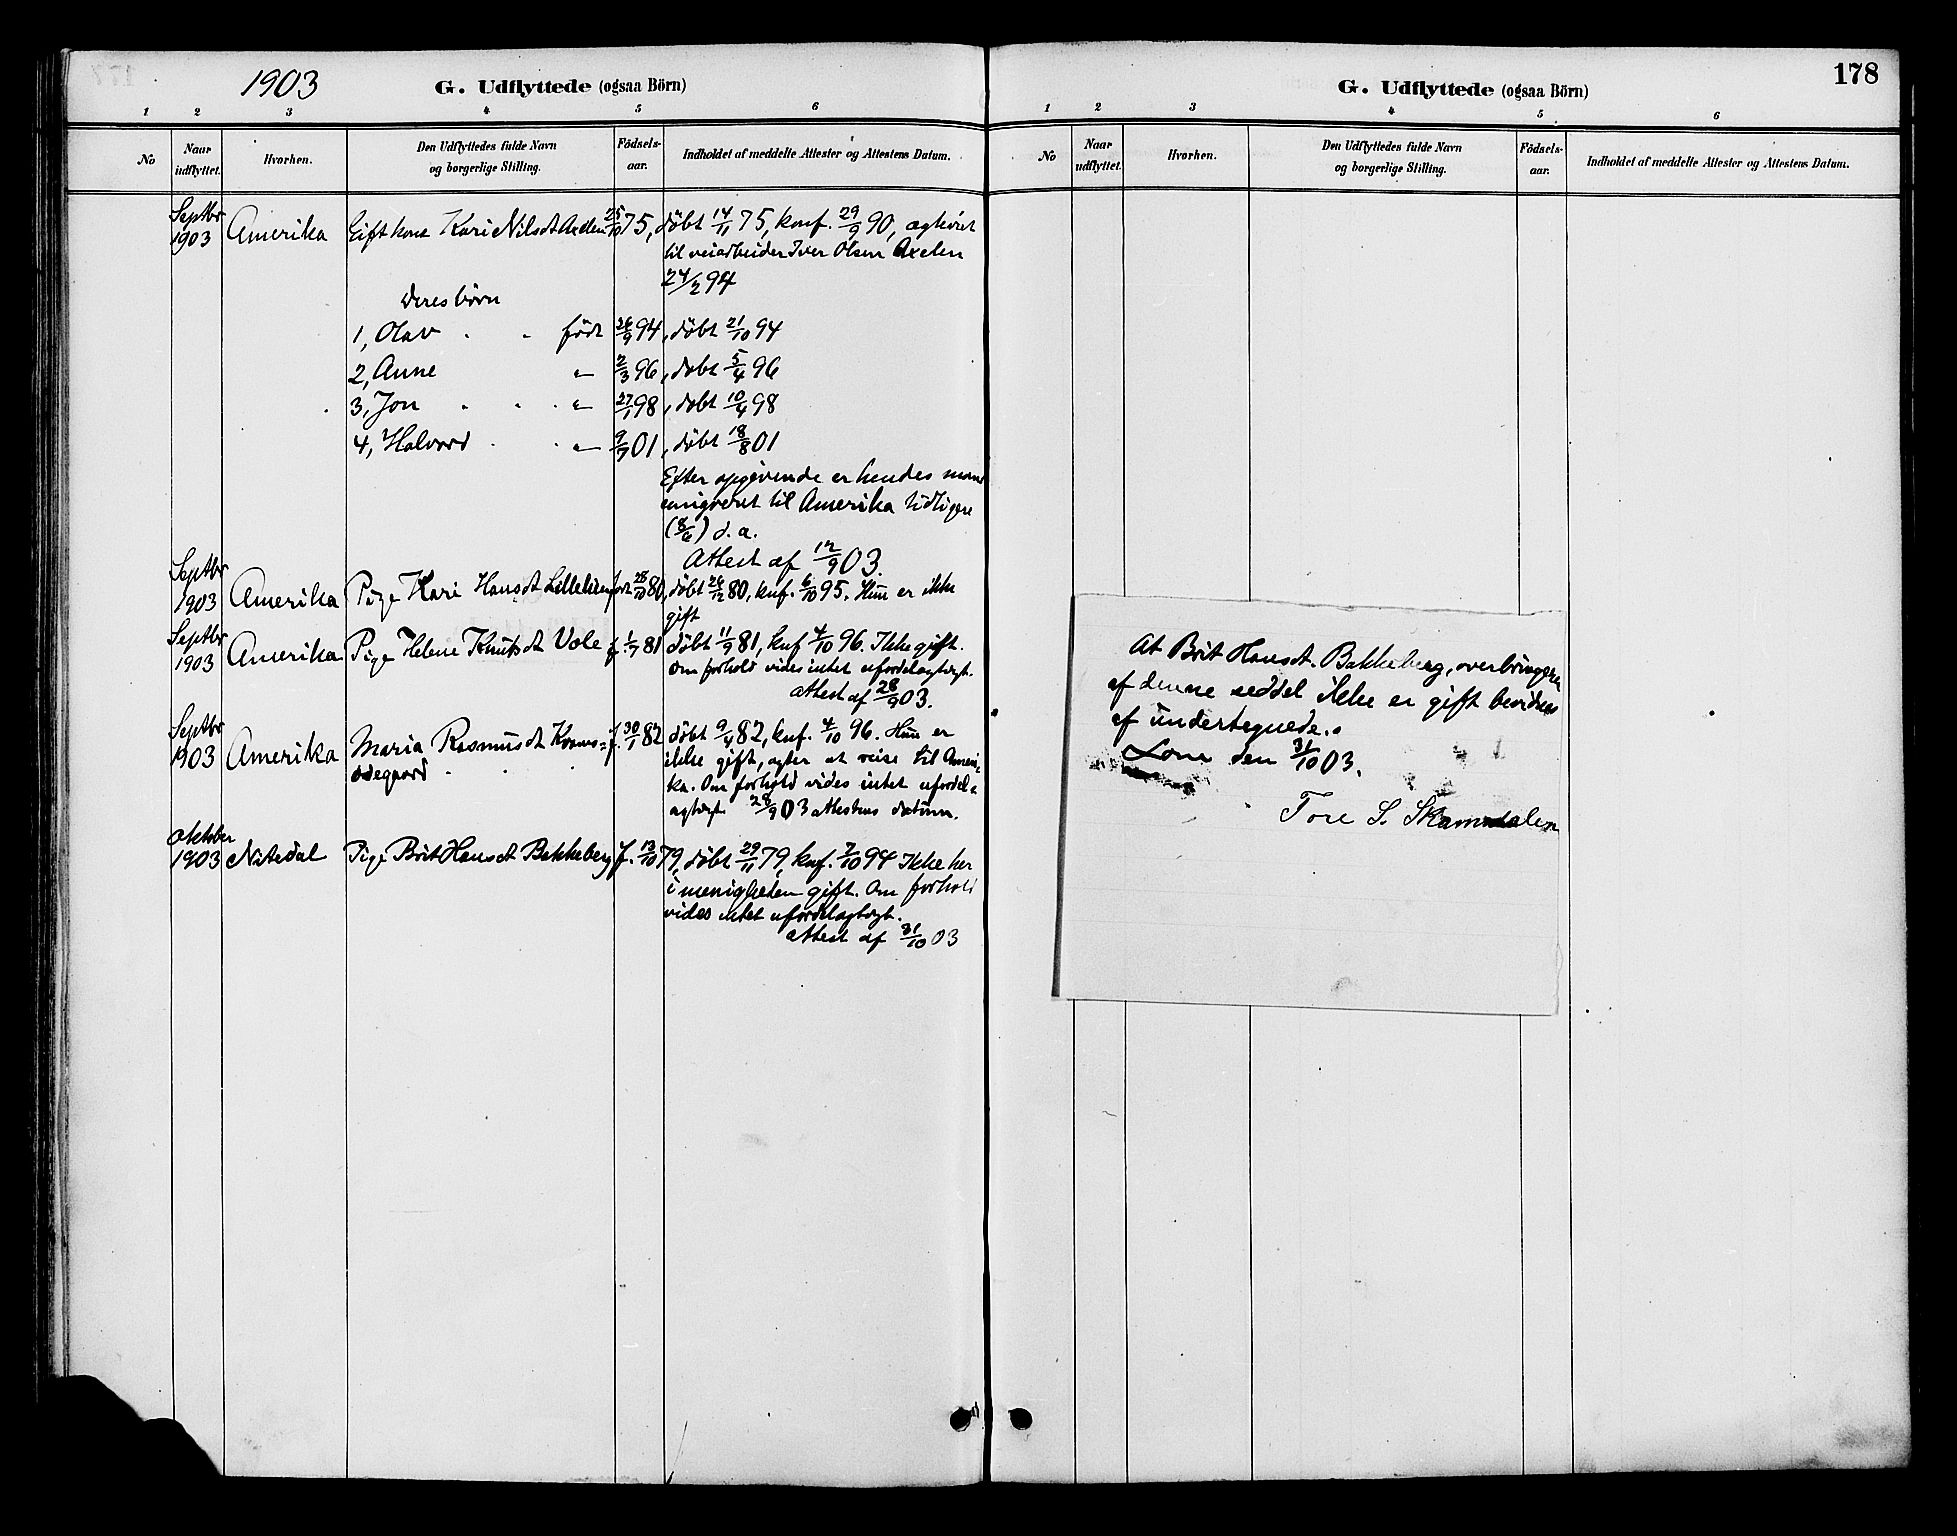 1903
G. Udflyttede (ogsaa Börn)
1 2 3 4 5 6
No
Naar udflyttet.
Hvorhen.
Den Udflyttedes fulde Navn og borgerlige Stilling.
Födsels-aar.
Indholdet af meddelte Attester og Attestens Datum.
Septbr 1903 Amerika Gift kone Kari Nilsdt Axelen 25/10 75, döbt 14/11 75, konf. 29/9 90, ægtviet
til veiarbeider Iver Olsen Axelen
24/2 94
Deres börn
1, Olav födt 26/9 94, döbt 21/10 94
2, Anne " 2/3 96, döbt 5/4 96
3, Jon " 27/1 98, döbt 10/4 98
4, Halvord " 9/7 01, döbt 18/8 01
Efter opgivende er hendes mand
emigreret til Amerika tidligere
(8/6) d. a.
Attest af 12/9 03.
Septbr 1903 Amerika Pige Kari Hansdt Lillelien født 28/10 80, döbt 26/12 80, knf. 6/10 95. Hun er ikke
gift
Septbr 1903 Amerika Pige Helene Knutsdt Vole f. 1/7 81 döbt 11/9 81, knf 4/10 96. Ikke gift.
Om forhold vides intet ufordelagtigt.
Attest af 28/9 03.
Septbr 1903 Amerika Maria Rasmusdt Kvams= f. 30/1 82 döbt 9/4 82, knf. 4/10 96. Hun er
ödegaard ikke gift, agter at reise til Ameri-
ka. Om forhold vides intet ufordel=
agtigt 28/9 03 attestens datum.
Oktober 1903 Nitedal Pige Brit Hansdt Bakkeberg f. 13/10 79, döbt 29/11 79, knf. 7/10 94 Ikke her
i menigheden gift. Om forhold
vides intet ufordelagtigt.
Attest af 31/10 03
178
G. Udflyttede (ogsaa Börn)
1 2 3 4 5 6
No
Naar udflyttet.
Hvorhen.
Den Udflyttedes fulde Navn og borgerlige Stilling.
Födsels-aar.
Indholdet af meddelte Attester og Attestens Datum.
At Brit Hansdt. Bakkeberg, overbringeren
af denne seddel ikke er gift bevidnes
af undertegnede.
Lom den 31/10 03.
Tore S.